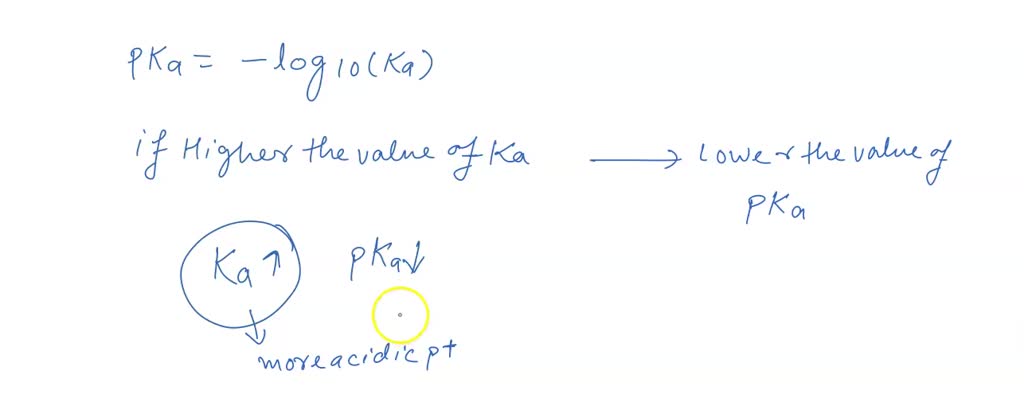 pKa = -log10(Ka)
if Higher the value of Ka → Lower the value of
pKa
Ka↑ pKa↓
more acidic pt